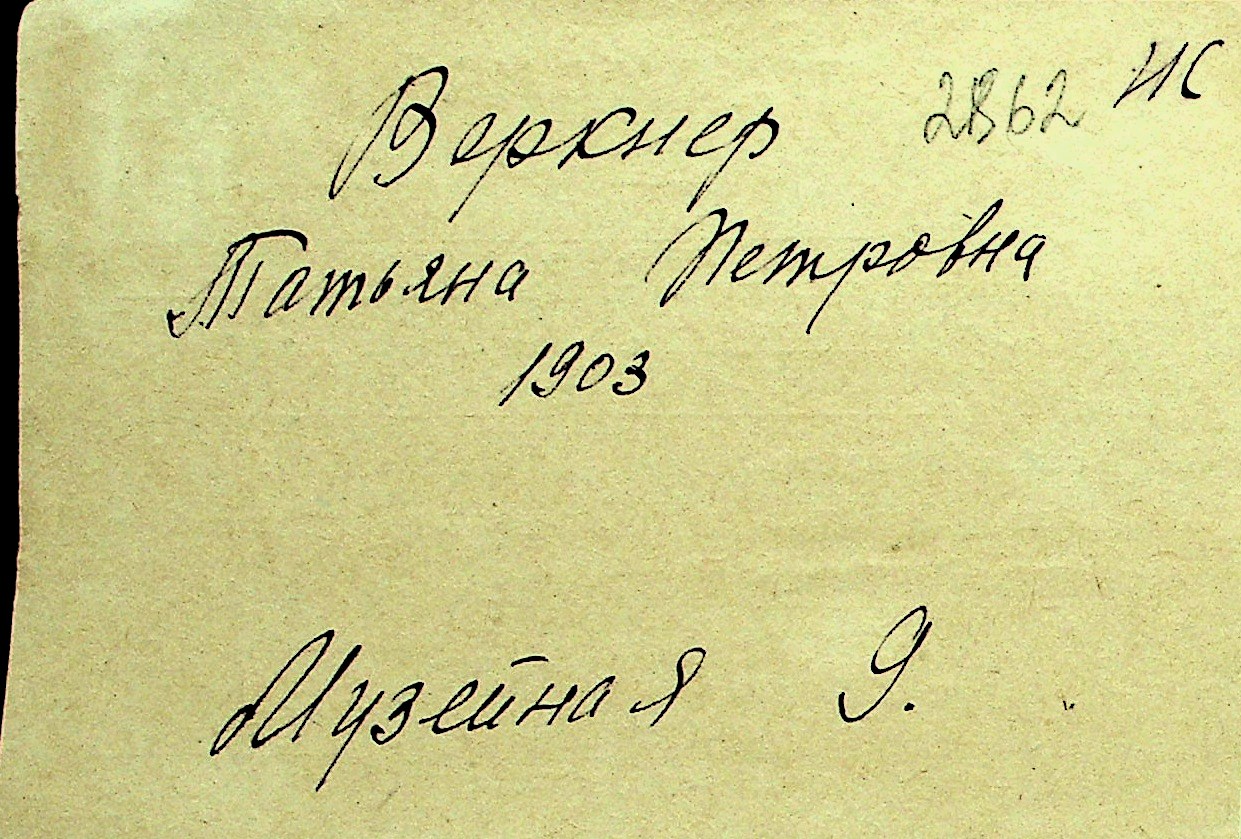 Веркнер 2862 НС
Татьяна Петровна
1903
Музейная 9.